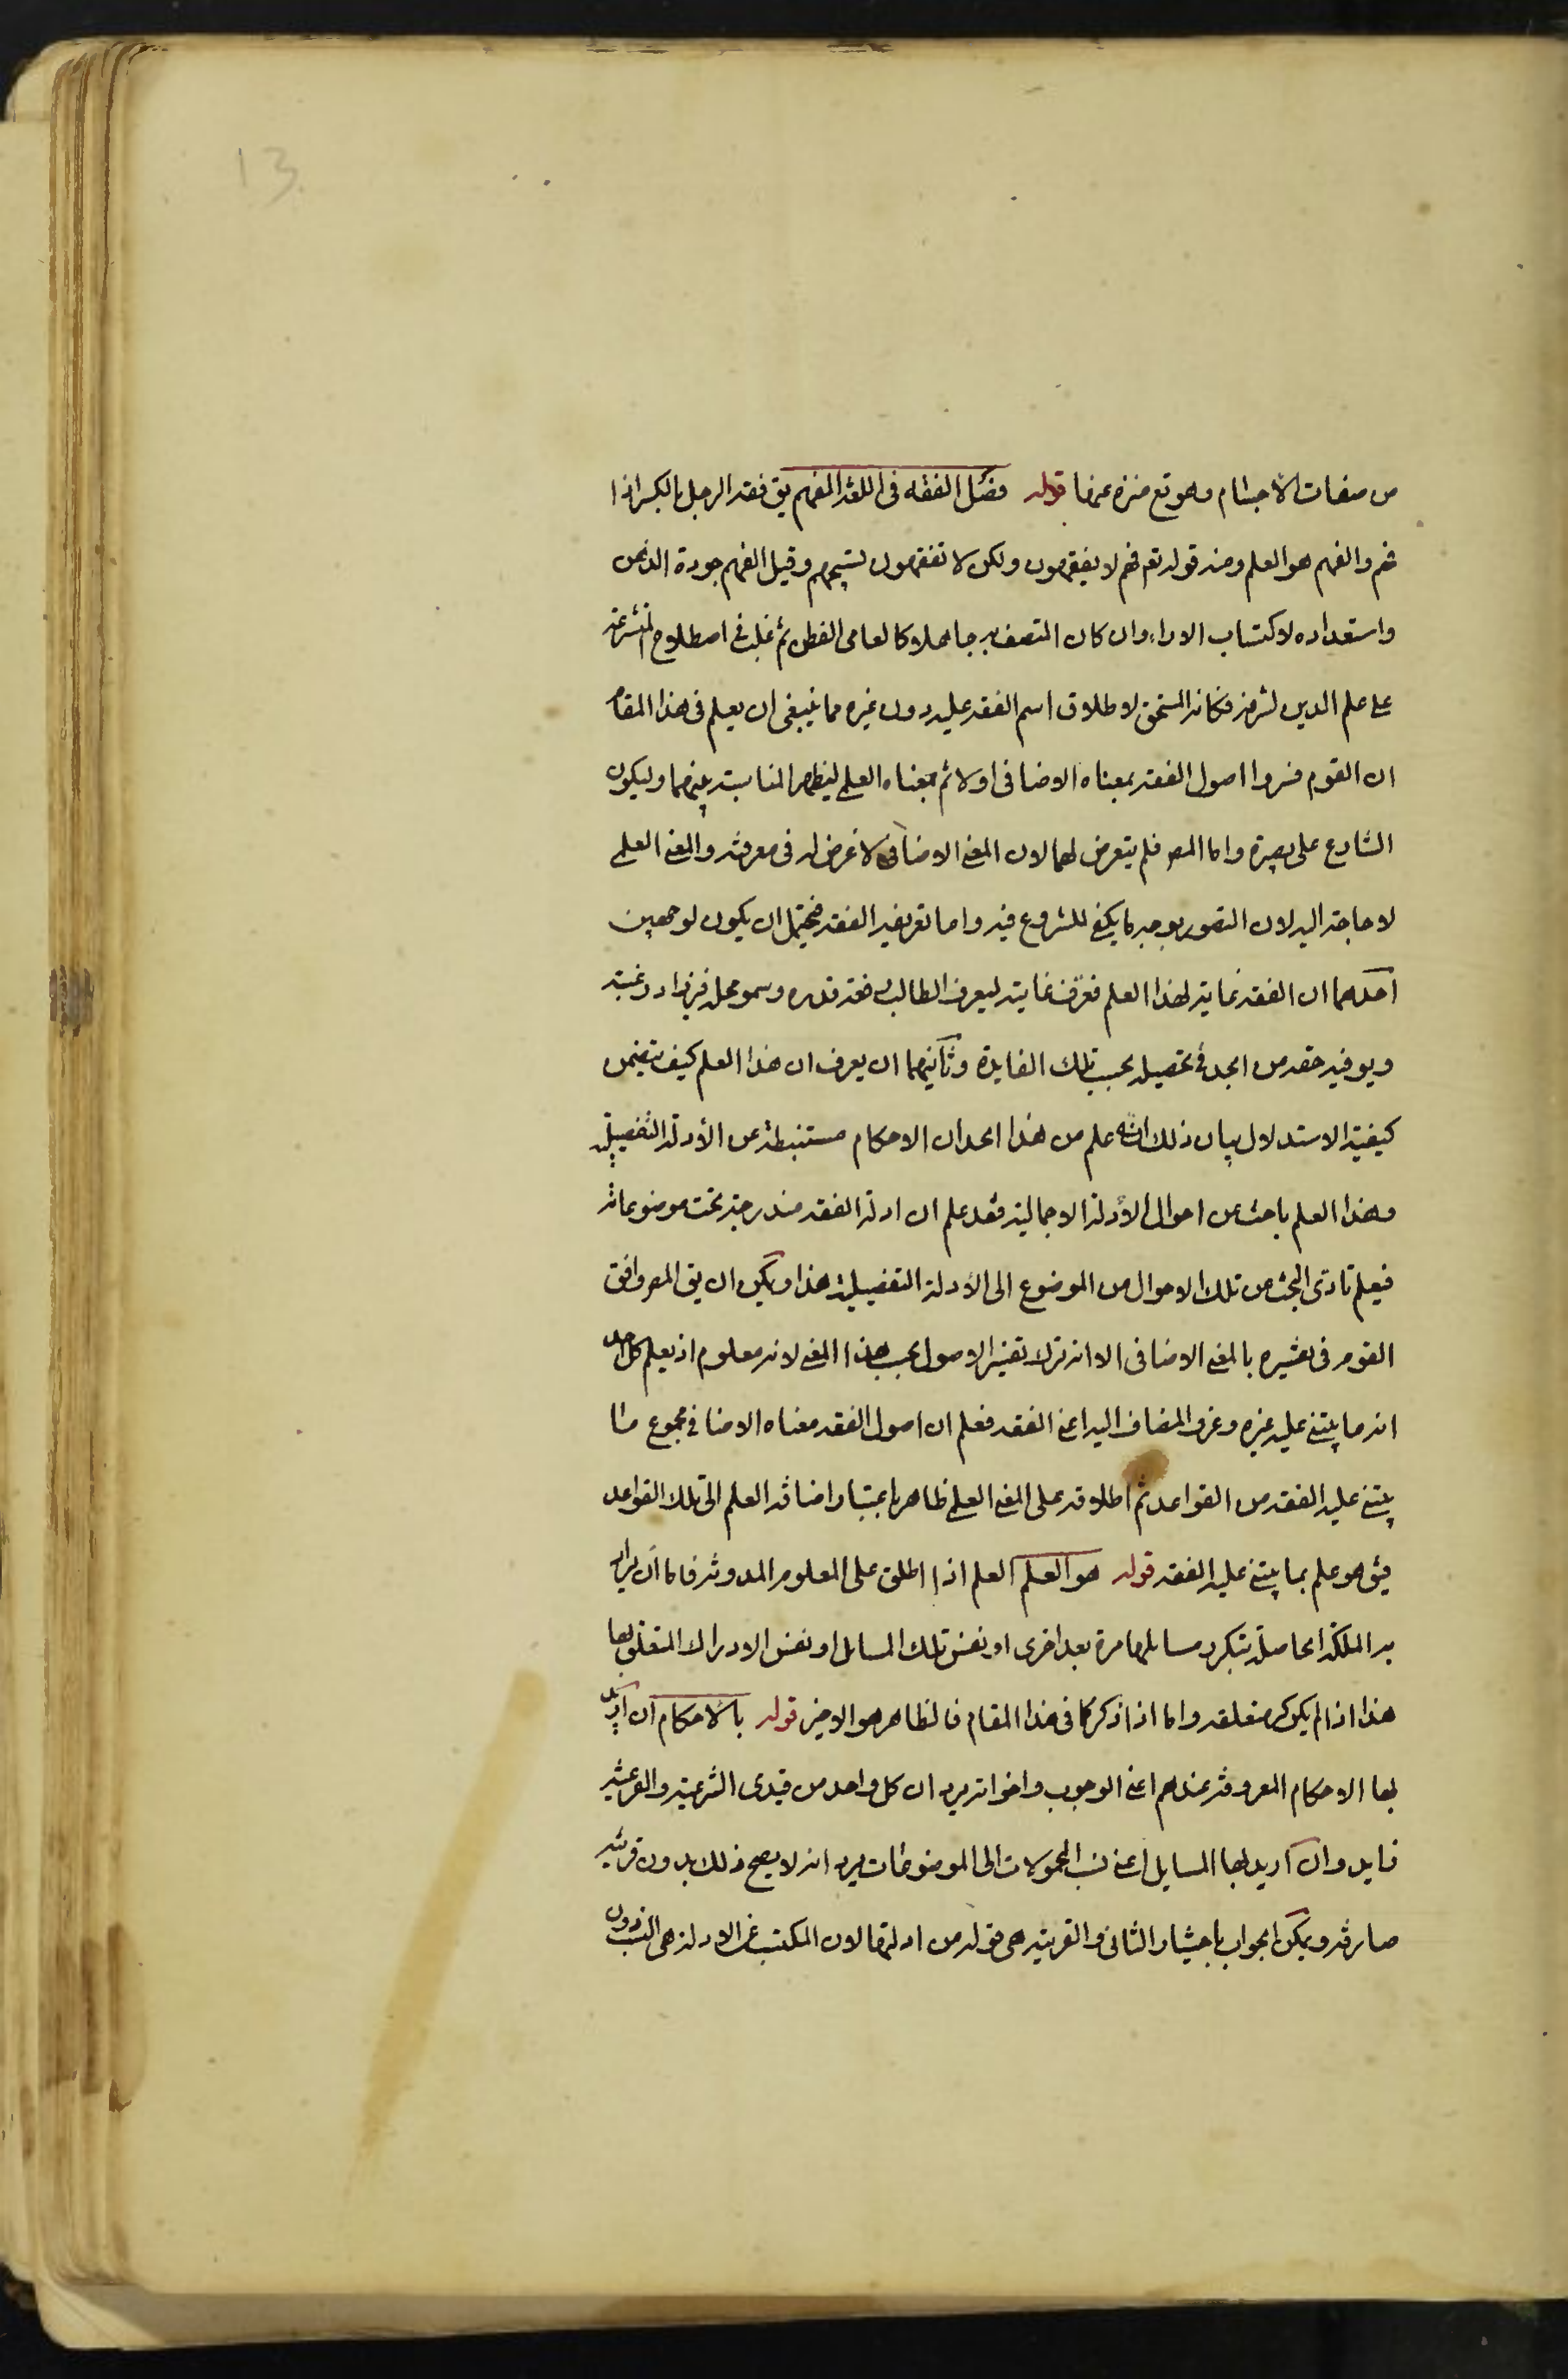 13
من صفات الاجسام وهو تع منزه عنها قوله فصل الفقه فى اللغة الفهم يق فقه الرجل بالكسر اذا
فهم والفهم هو العلم ومنه قوله تع فهم لا يفقهون ولكن لا تفقهون تسبيحهم وقيل الفهم جودة الذهن
واستعداده لاكتساب الاراء وان كان المتصف به جاهلا كالعامى الفطن ثم غلب فى اصطلاح المتشرعة
على علم الدين لشرفه فكانه المستحق لاطلاق اسم الفقه عليه دون غيره مما ينبغى ان يعلم فى هذا المقام
ان القوم فسروا اصول الفقه بمعناه الاضافى اولا ثم بمعناه العلمى ليظهر المناسبة بينهما وليكون
الشارع على بصيرة واما المصر فلم يتعرض لهما لان المعنى الاضافى لا غرض له فى معرفته والمعنى العلمى
لا حاجة اليه لان التصور بوجه ما يكفى للشروع فيه واما تعريفه الفقه فيحتمل ان يكون لوجهين
احدهما ان الفقه غاية لهذا العلم فعرف غايته ليعرف الطالب رفعة قدره وسمو محله فيزداد رغبته
ويوفيه حقه من الجد فى تحصيله بحسب تلك الفايدة وثانيهما ان يعرف ان هذا العلم كيف يتضمن
كيفية الاستدلال بيان ذلك انه علم من هذا الحد ان الاحكام مستنبطة عن الأدلة التفصيلية
وهذا العلم باحث عن احوال الأدلة الاجمالية فقد علم ان ادلة الفقه مندرجة تحت موضوعاته
فيعلم تادى البحث من تلك الاحوال من الموضوع الى الأدلة التفصيلية هذا ويمكن ان يق المصر وافق
القوم فى تفسيره بالمعنى الاضافى الا انه ترك تفسير الاصول بحسب هذا المعنى لانه معلوم اذ يعلم كل احد
انه ما يبتنى عليه غيره وعرف المضاف اليه اعنى الفقه فعلم ان اصول الفقه معناه الاضافى مجموع ما
يبتنى عليه الفقه من القواعد ثم اطلاقه على المعنى العلمى ظاهر باعتبار اضافة العلم الى تلك القواعد
فيق هو علم بما يبتنى عليه الفقه قوله هو العلم العلم اذا اطلق على المعلوم المدونة فاما ان يراد
به الملكة الحاصلة بتكرر مسايلها مرة بعد اخرى او نفس تلك المسايل او نفس الادراك المتعلق بها
هذا اذا لم يكن ذكر متعلقه واما اذا ذكر كما فى هذا المقام فالظاهر هو الاخير قوله بالاحكام ان اريد
بها الاحكام المعروفة عندهم اعنى الوجوب واخواته يرد ان كل واحد من قيدى الشرعية والفرعية
زايد وان اريد بها المسايل اعنى نسب المحمولات الى الموضوعات يرد انه لا يصح ذلك بدون قرينة
صارفة ويمكن الجواب باختيار الثانى والقرينة هى قوله من ادلتها لان المكتسب عن الادلة هى النسب دون